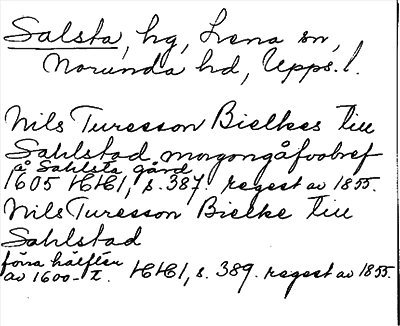 Salsta, hg, Lena sn,
Norunda hd, Upps. l.
Nils Turesson Bielkes till
Sahlstad morgongåfvobref
på Sahlsta gård
1605 HH1, s. 387. regest av 1855.
Nils Turesson Bielke till
Sahlstad
förra hälften
av 1600-t. HH1, s. 389. regest av 1855.